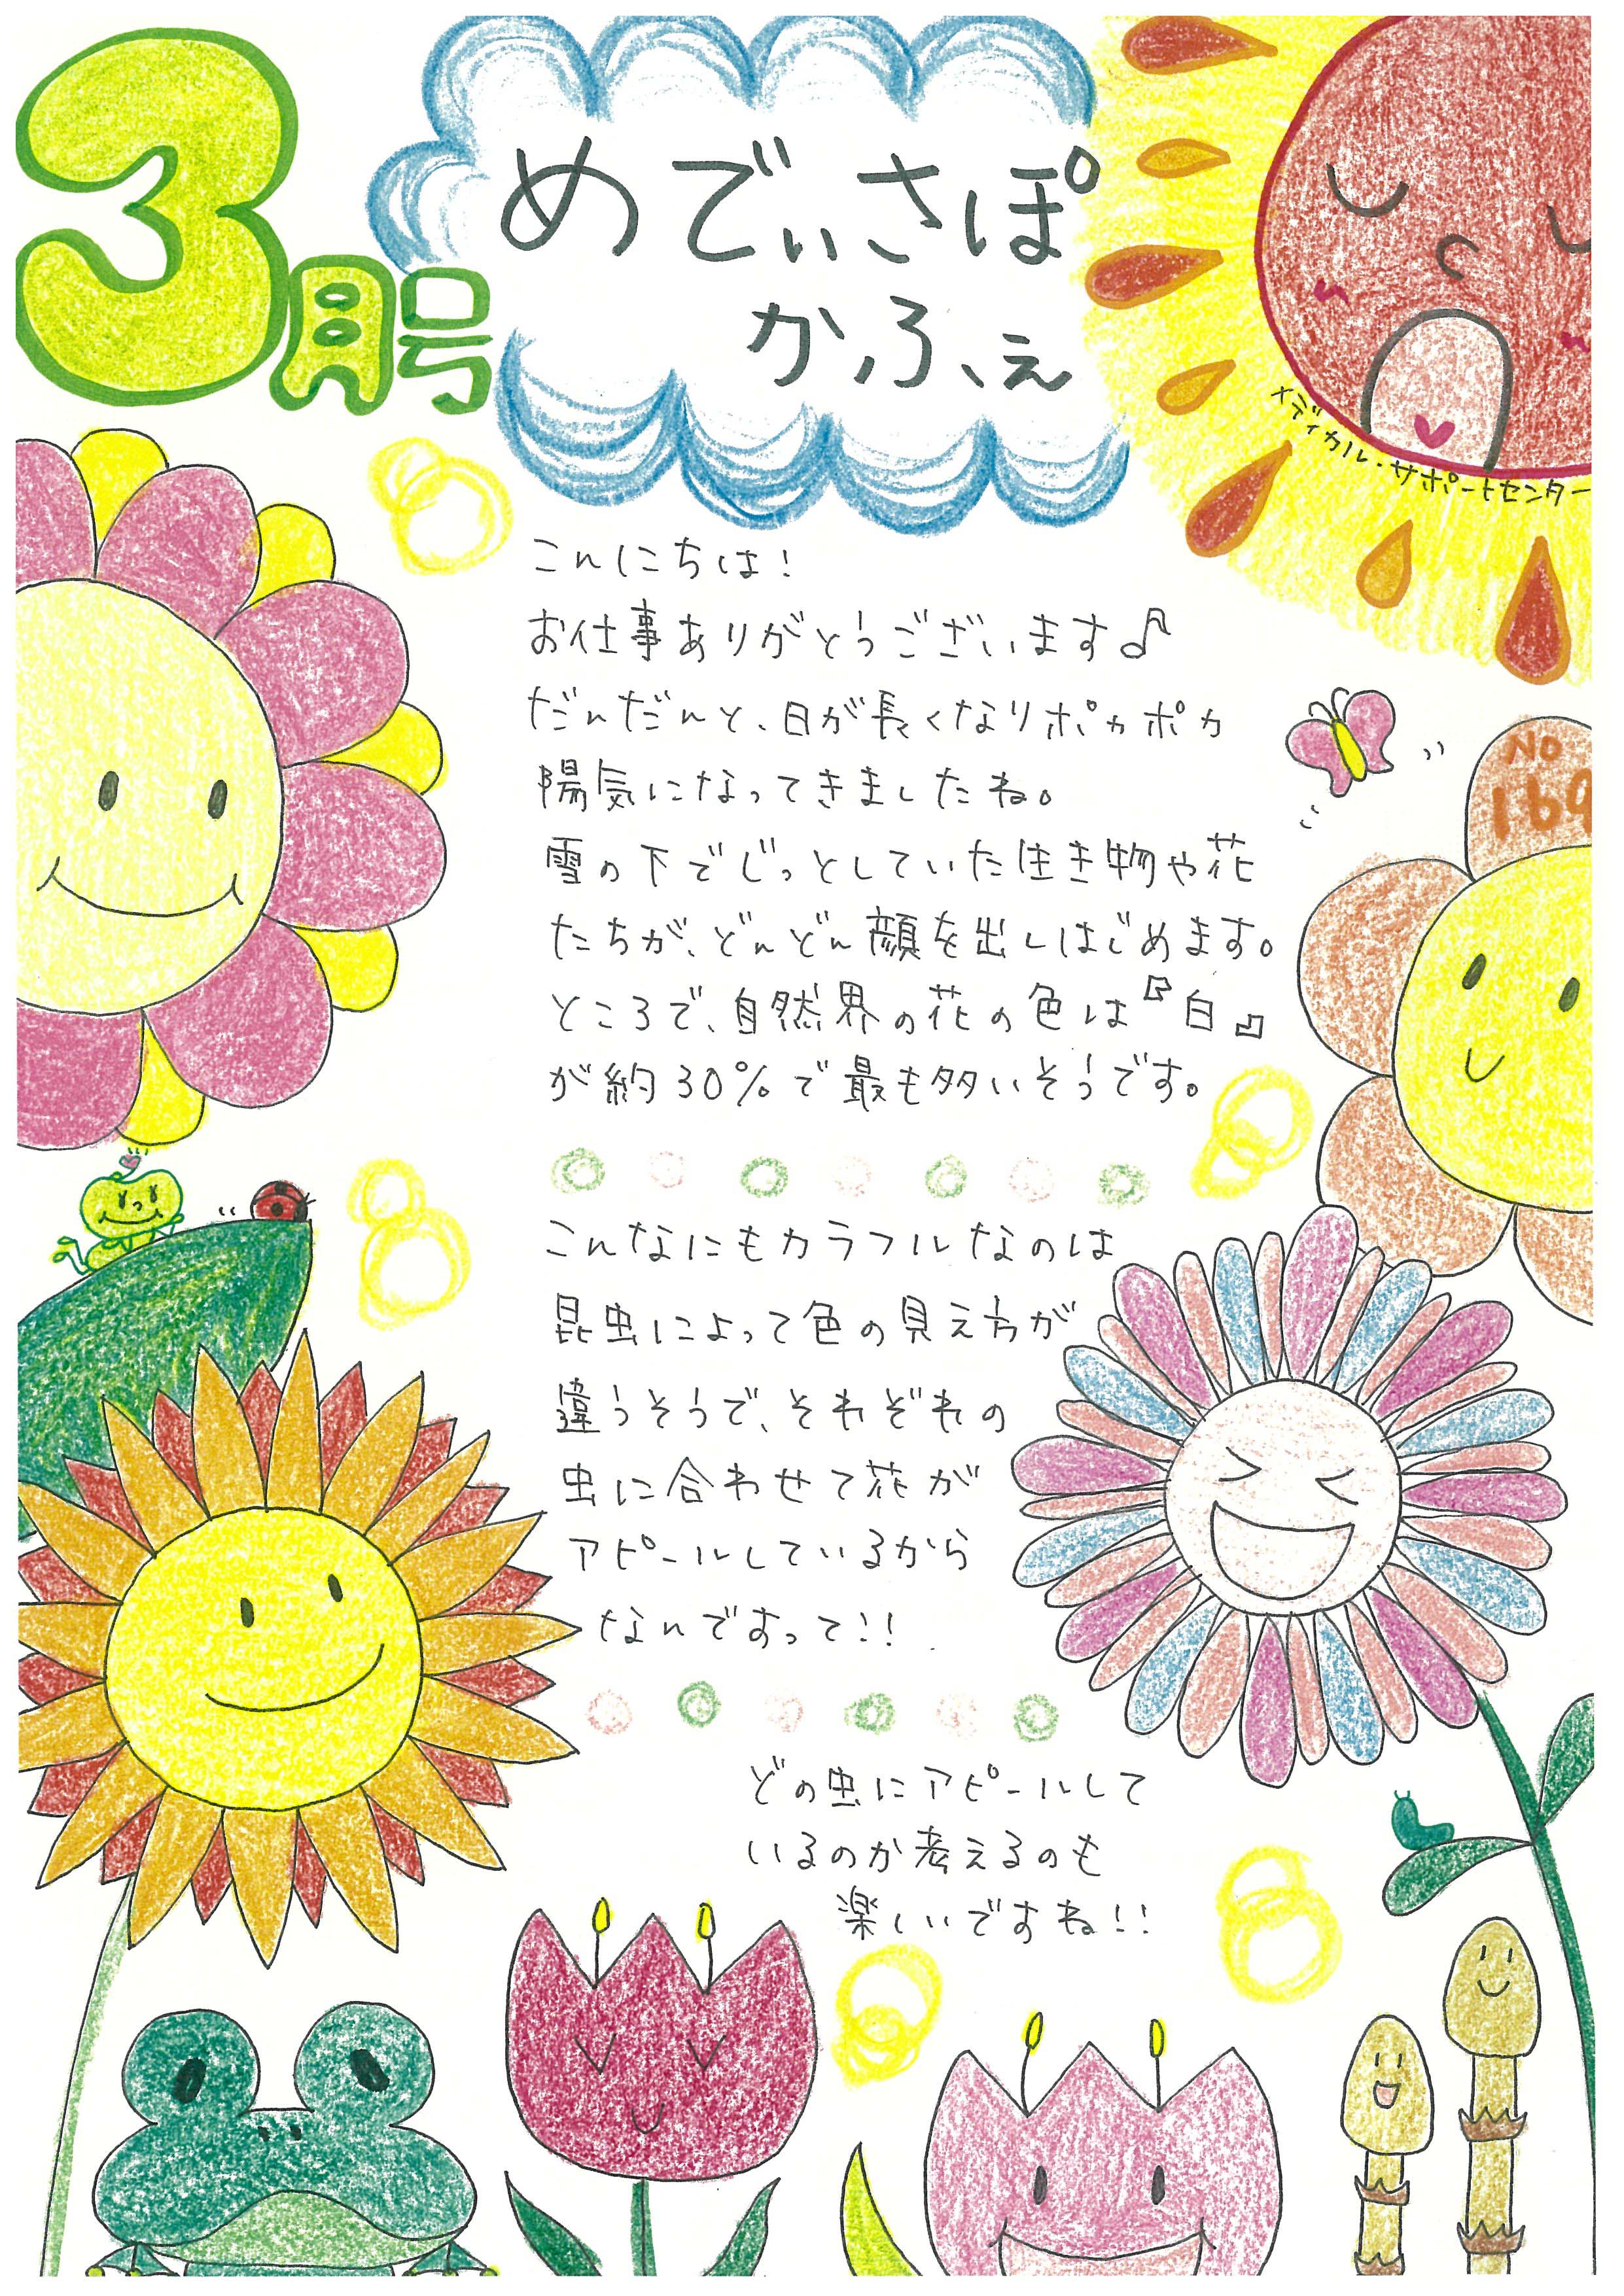 3月号
めでぃさぽ
かふぇ
メディカル・サポートセンター
こんにちは!
お仕事ありがとうございます♪
だんだんと、日が長くなりポカポカ
陽気になってきましたね。
NO
169
雪の下でじっとしていた生き物や花
たちが、どんどん顔を出しはじめます。
ところで、自然界の花の色は『白』
が約30%で最も多いそうです。
こんなにもカラフルなのは
昆虫によって色の見え方が
違うそうで、それぞれの
虫に合わせて花が
アピールしているから
なんですって!!
どの虫にアピールして
いるのか考えるのも
楽しいですね!!